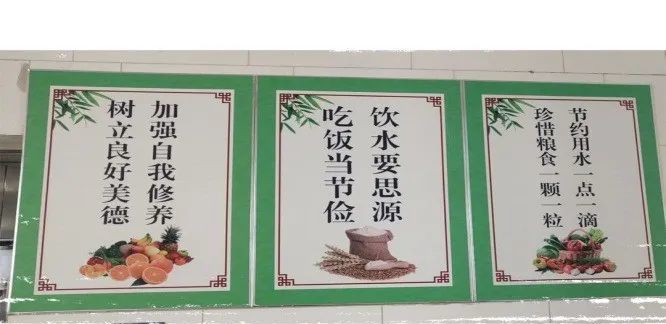 加强自我修养
树立良好美德
饮水要思源
吃饭当节俭
节约用水一点一滴
珍惜粮食一颗一粒